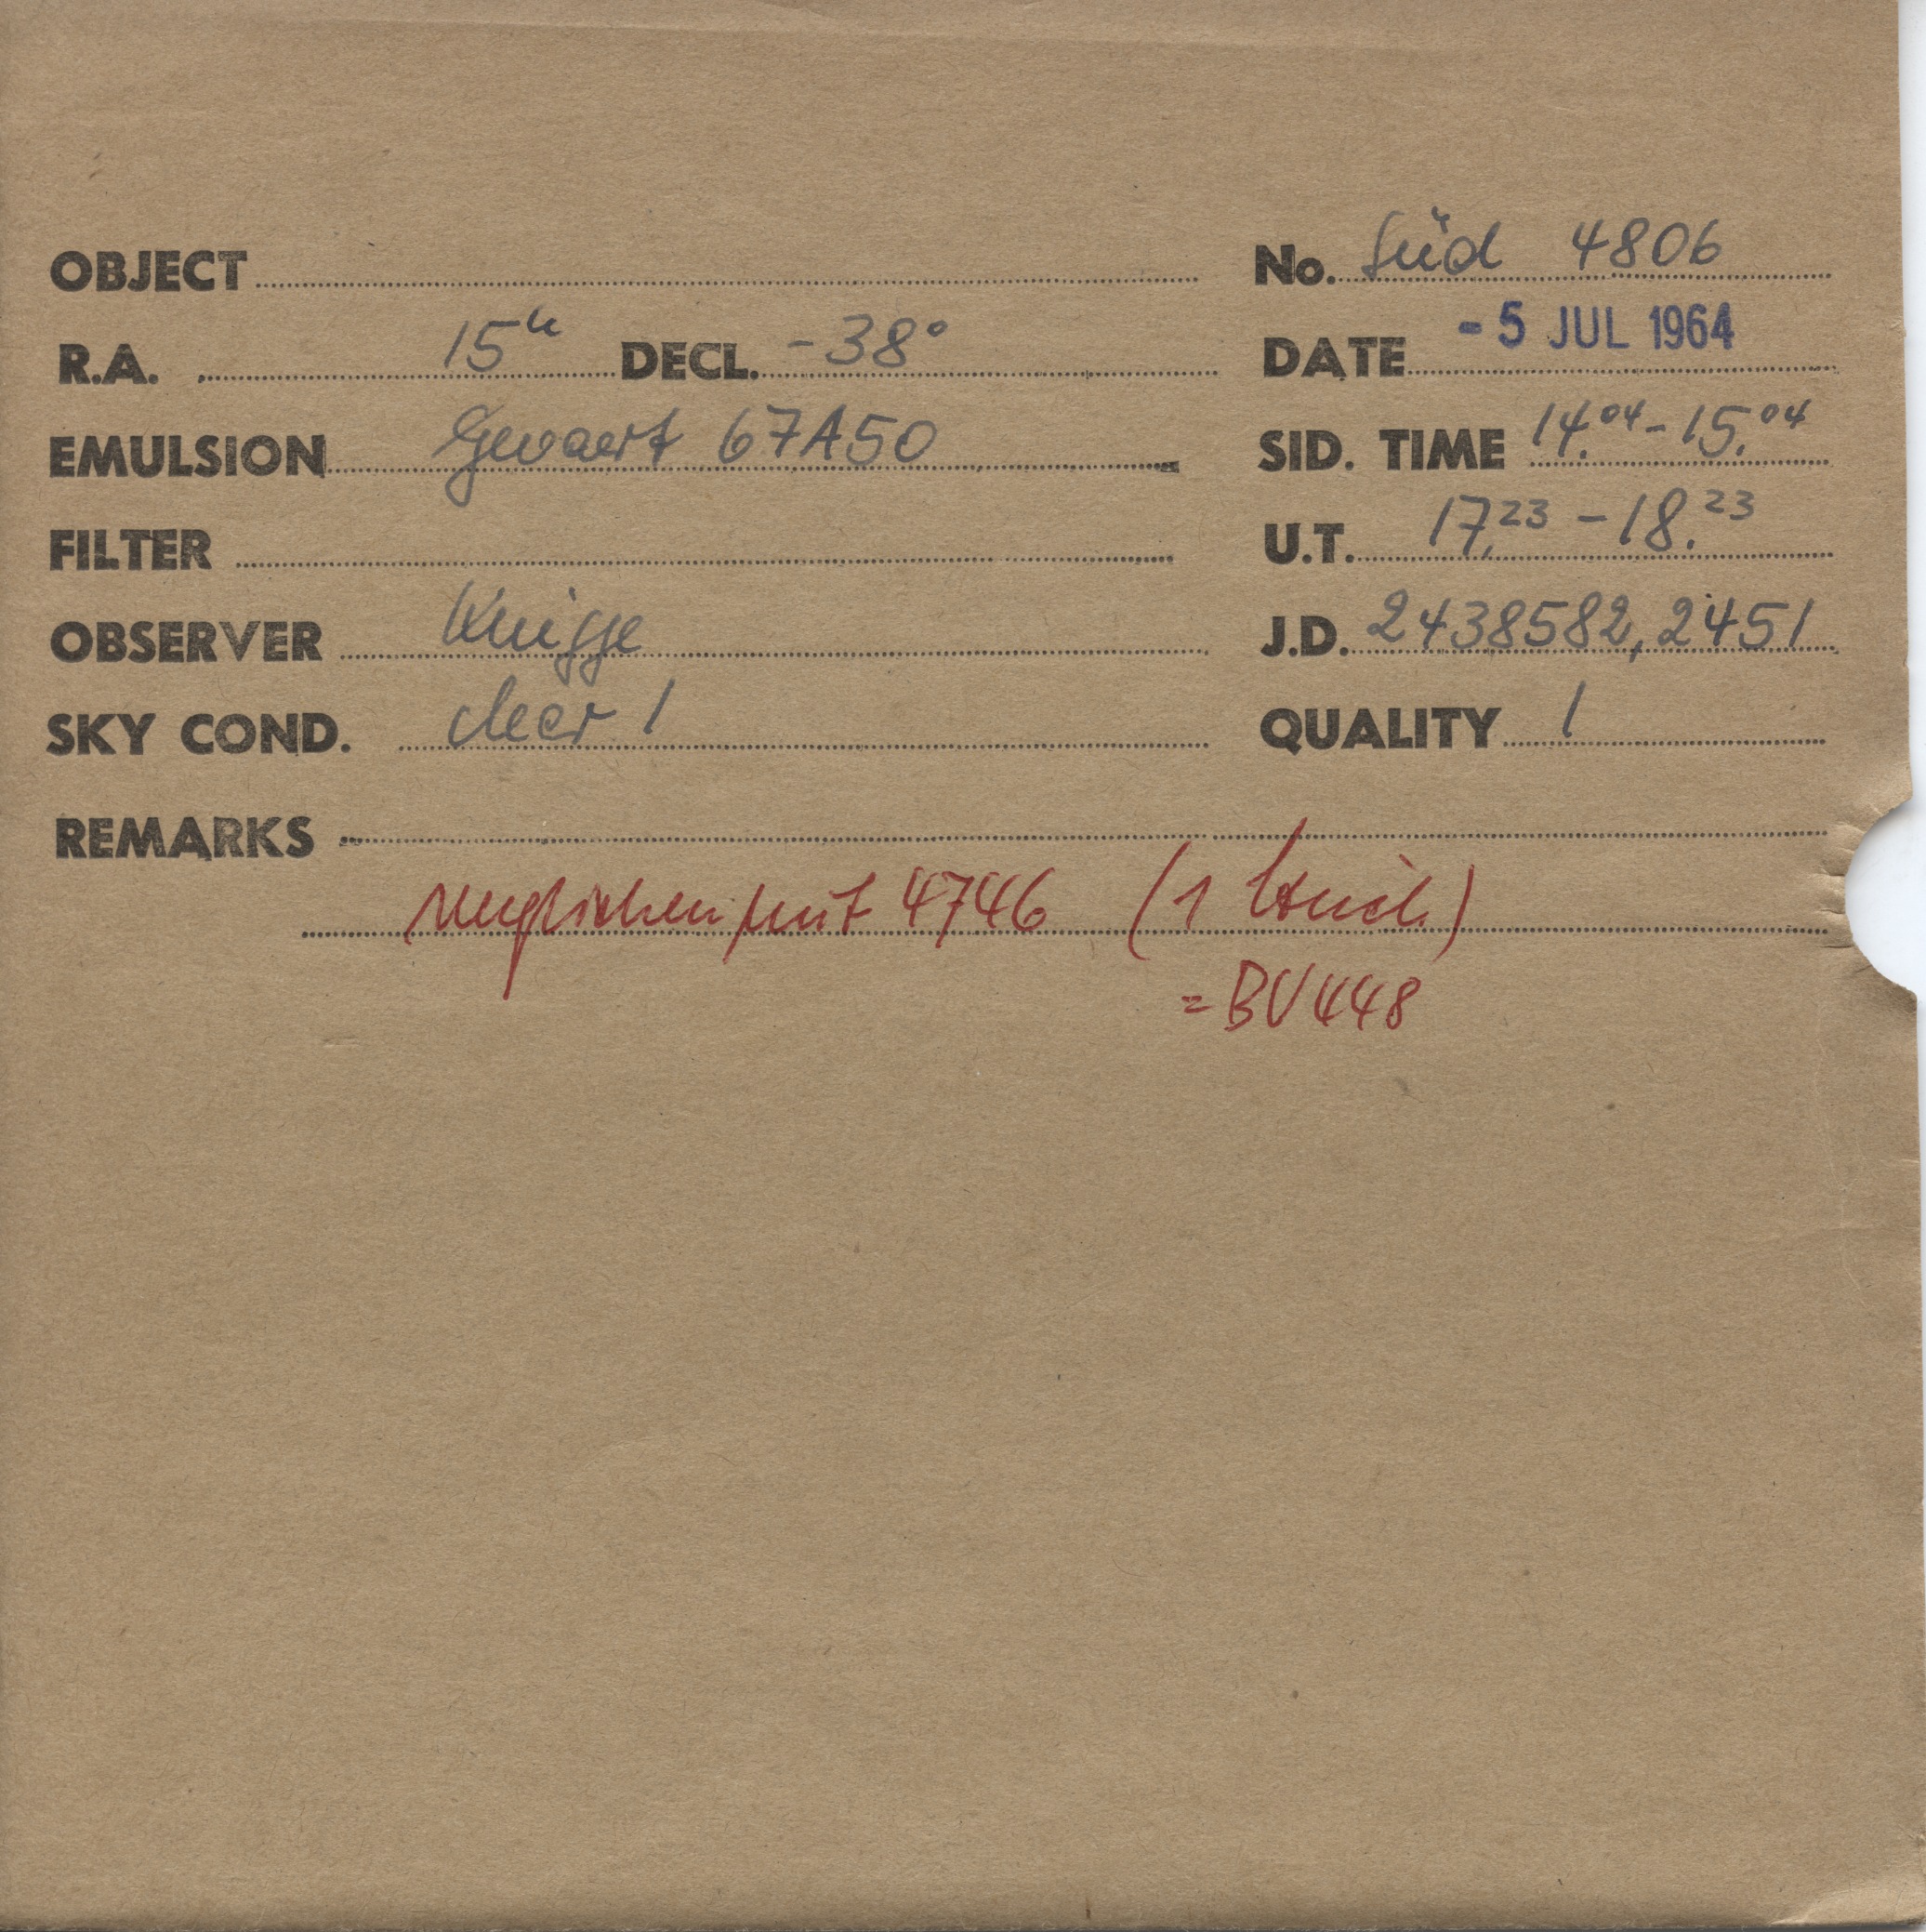 OBJECT No. Süd 4806
R.A. 15h DECL. -38° DATE - 5 JUL 1964
EMULSION Gevaert 67A50 SID. TIME 14.04 - 15.04
FILTER U.T. 17.23 - 18.23
OBSERVER Knigge J.D. 2438582,2451
SKY COND. clear 1 QUALITY 1
REMARKS
verglichen mit 4746 (1
= BV 448